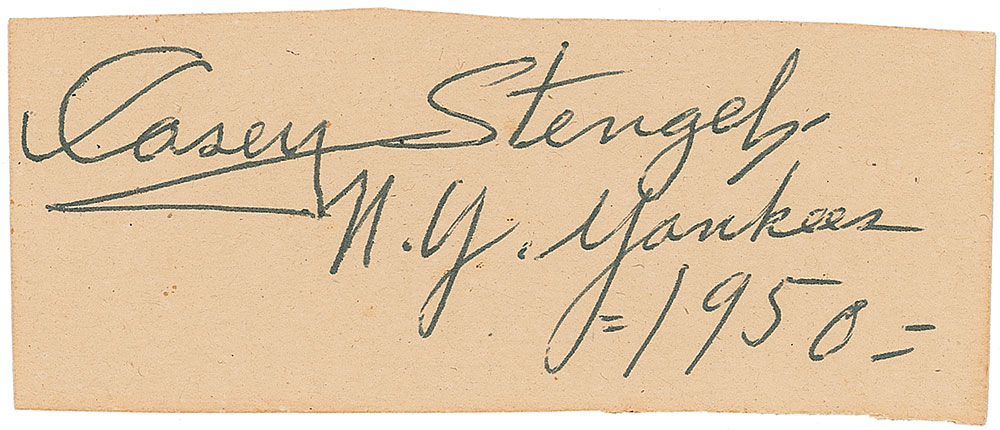 Casey Stengel
N.Y. Yankees
=1950=